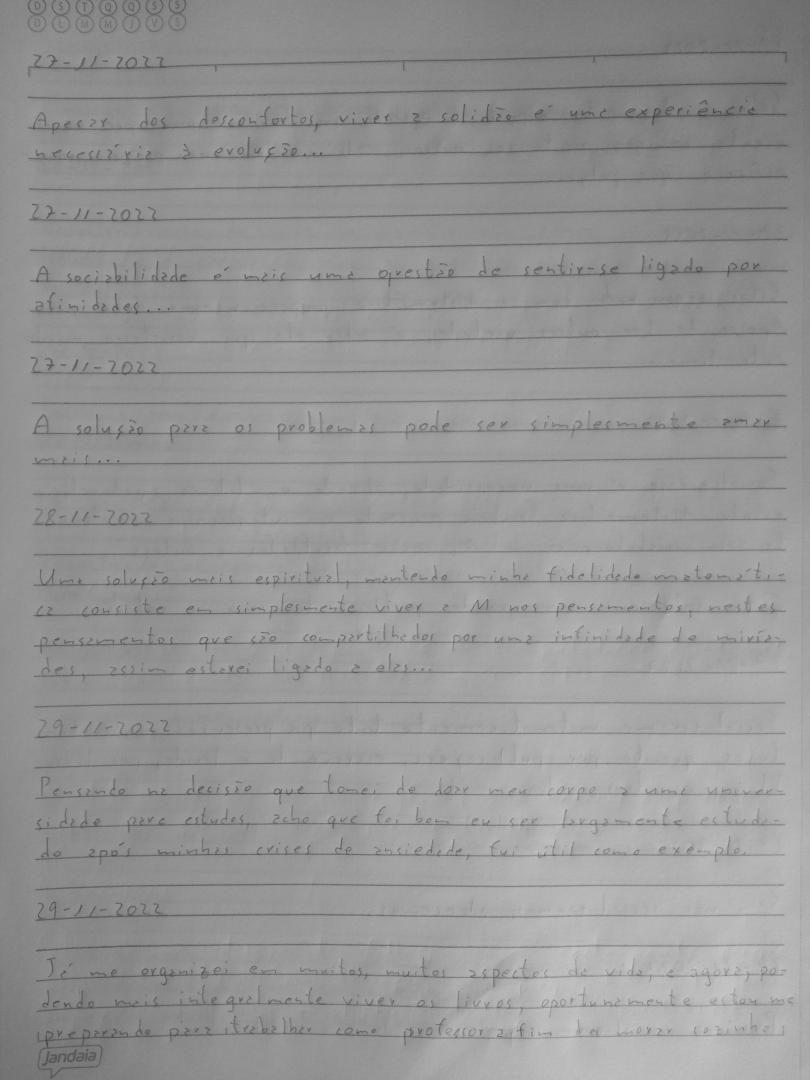 D S T Q Q S S
D L M M J V S
27-11-2022
Apesar dos desconfortos, viver a solidão é uma experiência
necessária à evolução...
27-11-2022
A sociabilidade é mais uma questão de sentir-se ligado por
afinidades...
27-11-2022
A solução para os problemas pode ser simplesmente amar
mais...
28-11-2022
Uma solução mais espiritual, mantendo minha fidelidade matemáti-
ca consiste em simplesmente viver a M nos pensamentos, nestes
pensamentos que são compartilhados por uma infinidade de miría-
des, assim estarei ligado a elas...
29-11-2022
Pensando na decisão que tomei de doar meu corpo a uma univer-
sidade para estudos, acho que foi bom eu ser largamente estuda-
do após minhas crises de ansiedade, fui útil como exemplo.
29-11-2022
Já me organizei em muitos, muitos aspectos da vida, e agora, po-
dendo mais integralmente viver os livros, oportunamente estou me
preparando para trabalhar como professor a fim de morar sozinho
Jandaia